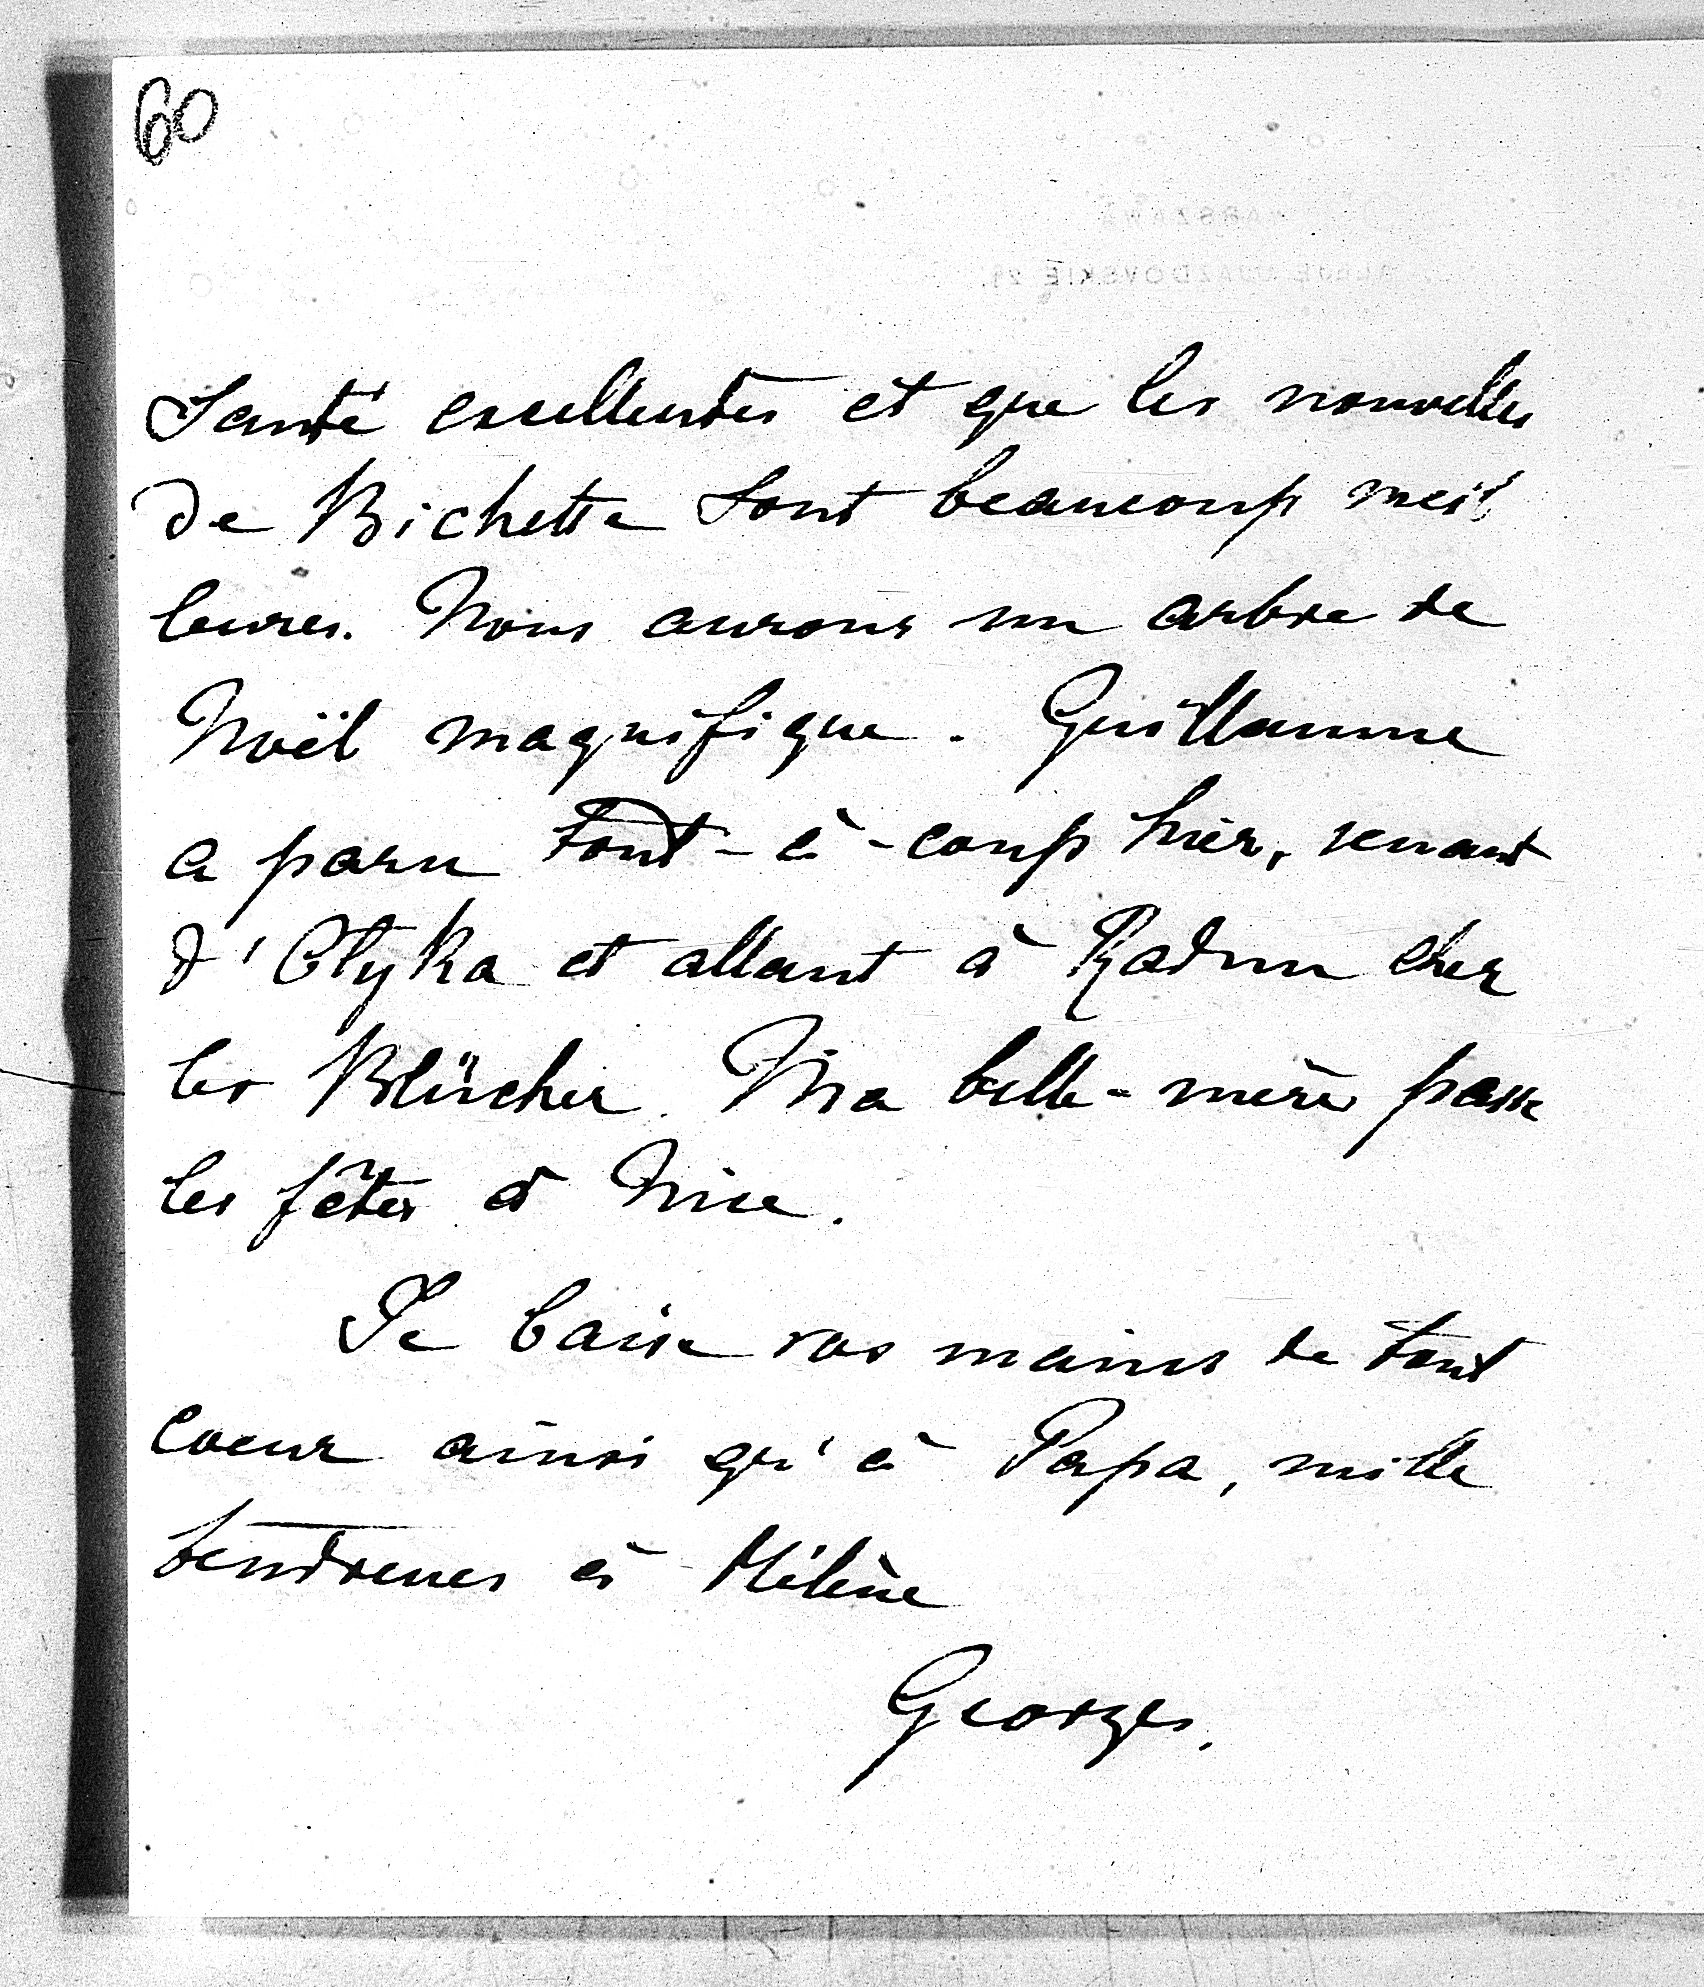 60
Santé excellentes et que les nouvelles
de Bichette sont beaucoup meil
leures. Nous aurons un arbre de
Noël magnifique. Guillaume
a paru tout-à-coup hier, venant
d'Olyka et allant à Radun chez
les Blücher. Ma belle-mère passe
les fêtes à Nice.
Je baise vos mains de tout
coeur ainsi qu'à Papa, mille
tendresses à Hélène
Georges.